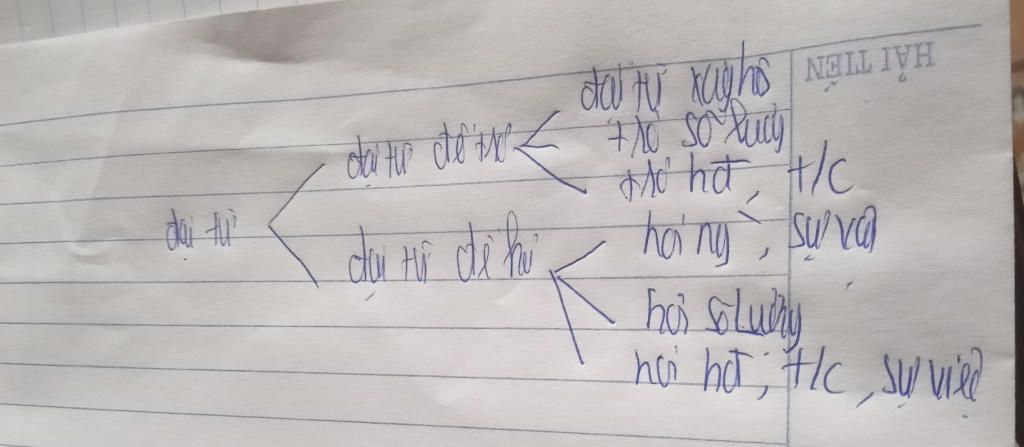 HẢI TIẾN
đại từ xưng hô
đại từ để trỏ
trỏ số lượng
trỏ hđ, t/c
đại từ
hỏi ng, sự vật
đại từ để hỏi
hỏi số lượng
hỏi hđ, t/c, sự việc